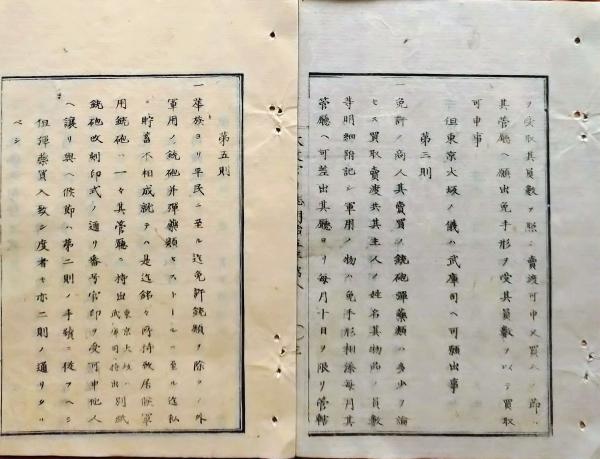 ヲ受取其員數ヲ照シ賣渡可申又買人ノ節ハ
其管廳ヘ願出免手形ヲ受其員數ヲ以テ買取
可申事
但東京大坂ノ儀ハ武庫司ヘ可願出事
第三則
一免許ノ商人其賣買ノ銃砲彈藥類ハ多少ヲ論
セス買取賣渡共其主人ノ姓名其物品ノ員數
等明細附記シ軍用ノ物ハ免手形相添每月其
管廳ヘ可差出其廳ヨリ每月十日ヲ限リ管轄
第五則
一華族ヨリ平民ニ至ル迄免許銃類ヲ除クノ外
軍用ノ銃砲并彈藥類ヒストールニ至ル迄私
ニ貯蓄不相成就テハ是迄銘々所持致居候軍
用銃砲ハ一々其管廳ニ持出東京大坂ハ武庫司ニ持出別紙
銃砲改刻印式ノ通リ番号官印ヲ受可申他人
ヘ讓リ與ヘ候節ハ第二則ノ手續ニ從フヘシ
但彈藥買入致シ度者モ亦二則ノ通リタル
ベシ